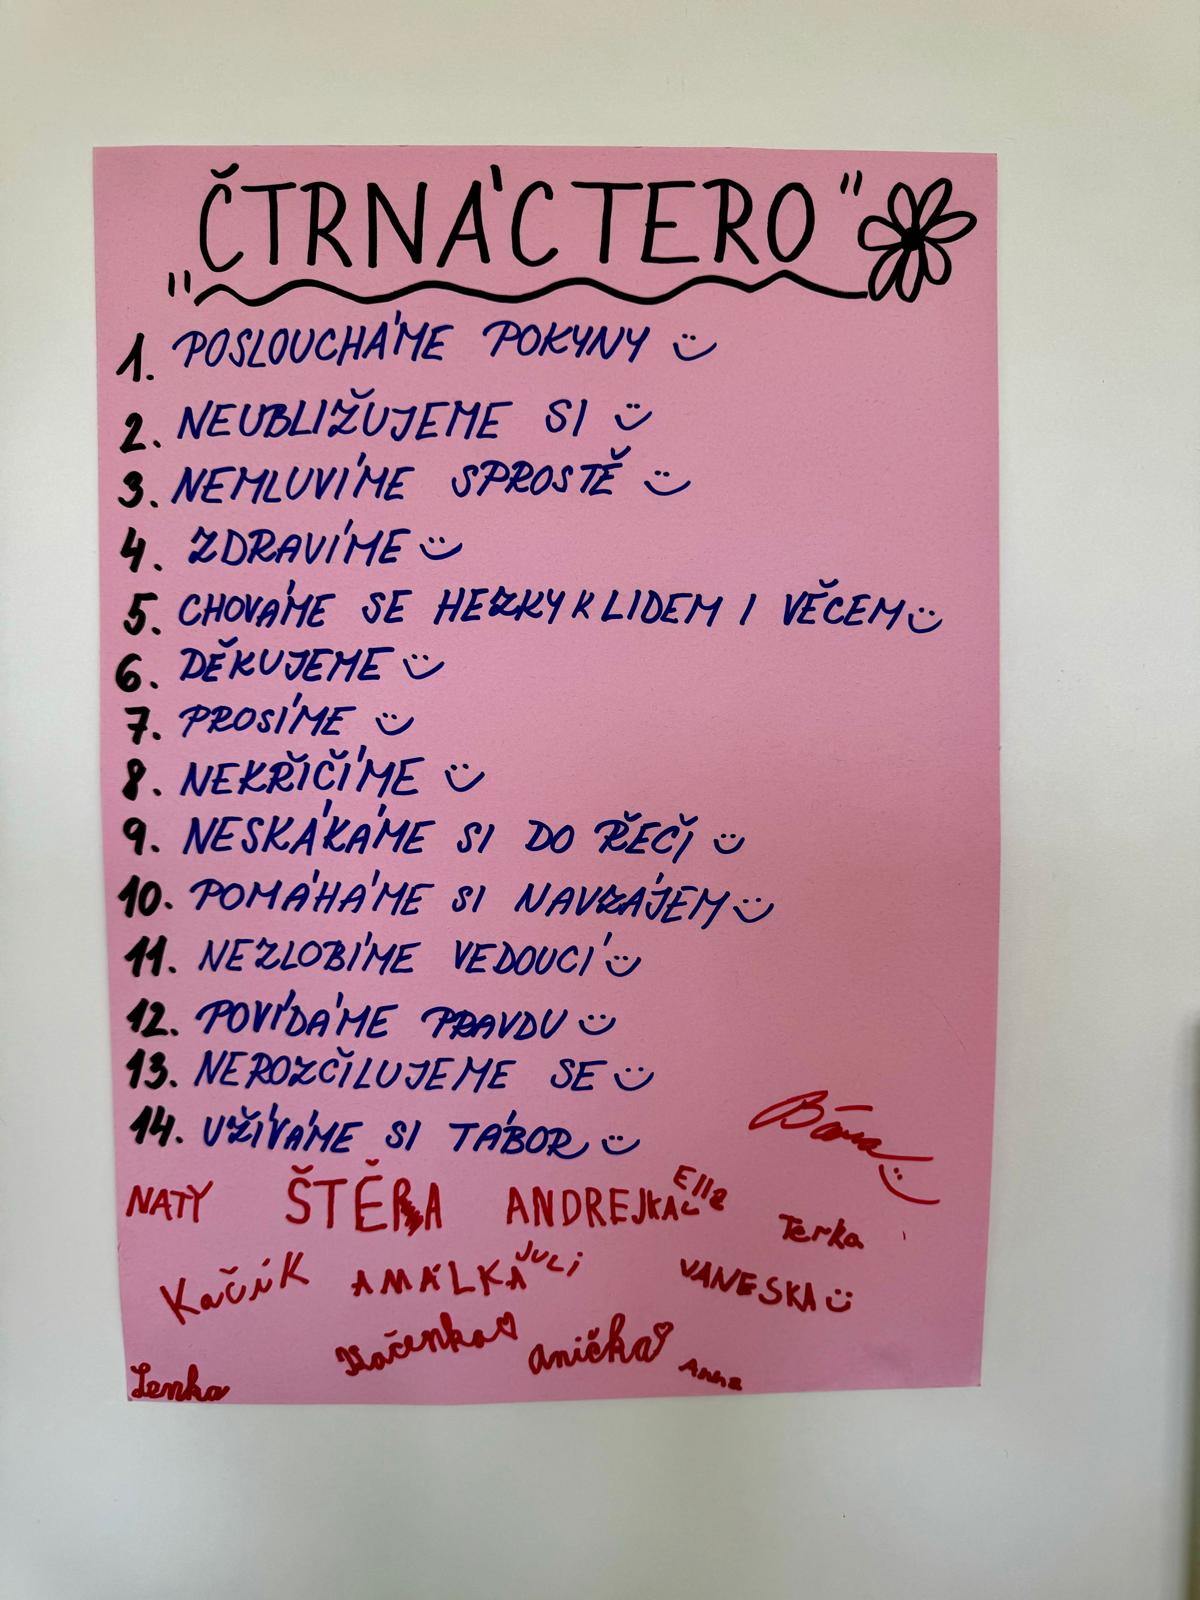 „ČTRNÁCTERO"
1. POSLOUCHÁME POKYNY
2. NEUBLIŽUJEME SI
3. NEMLUVÍME SPROSTĚ
4. ZDRAVÍME
5. CHOVÁME SE HEZKY K LIDEM I VĚCEM
6. DĚKUJEME
7. PROSÍME
8. NEKŘIČÍME
9. NESKÁKÁME SI DO ŘEČI
10. POMÁHÁME SI NAVZÁJEM
11. NEZLOBÍME VEDOUCÍ
12. POVÍDÁME PRAVDU
13. NEROZČILUJEME SE
14. UŽÍVÁME SI TÁBOR
Bára
NATY ŠTĚRA ANDREJKA Ella
Terka
Kačík AMÁLKA JULI VANESKA
Kačenka Anička Anna
Lenka